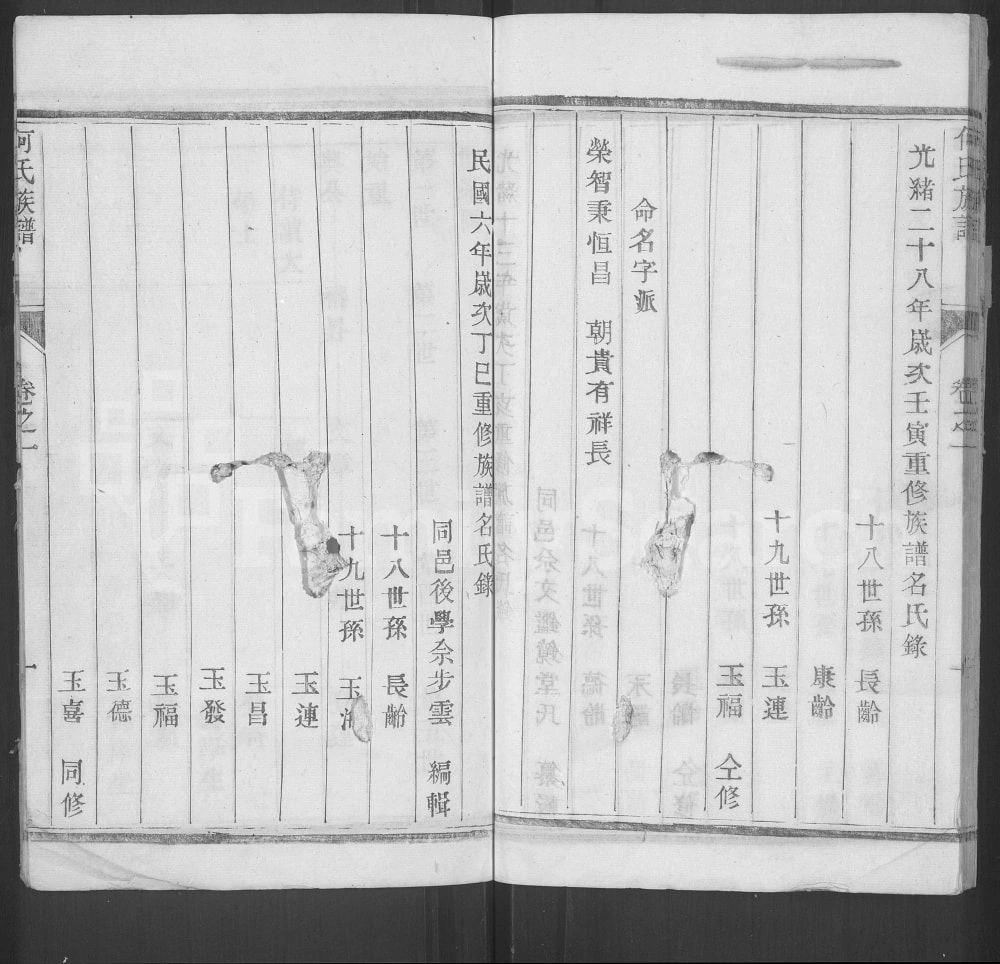 何氏族譜
卷之一
光緒二十八年歲次壬寅重修族譜名氏錄
十八世孫 長齡
康齡
十九世孫 玉連
玉福 仝修
命名字派
榮智秉恒昌 朝貴有祥長
民國六年歲次丁巳重修族譜名氏錄
同邑後學余步雲 編輯
十八世孫 長齡
十九世孫 玉
玉連
玉昌
玉發
玉福
玉德
玉喜 同修
何氏族譜
卷之二
一